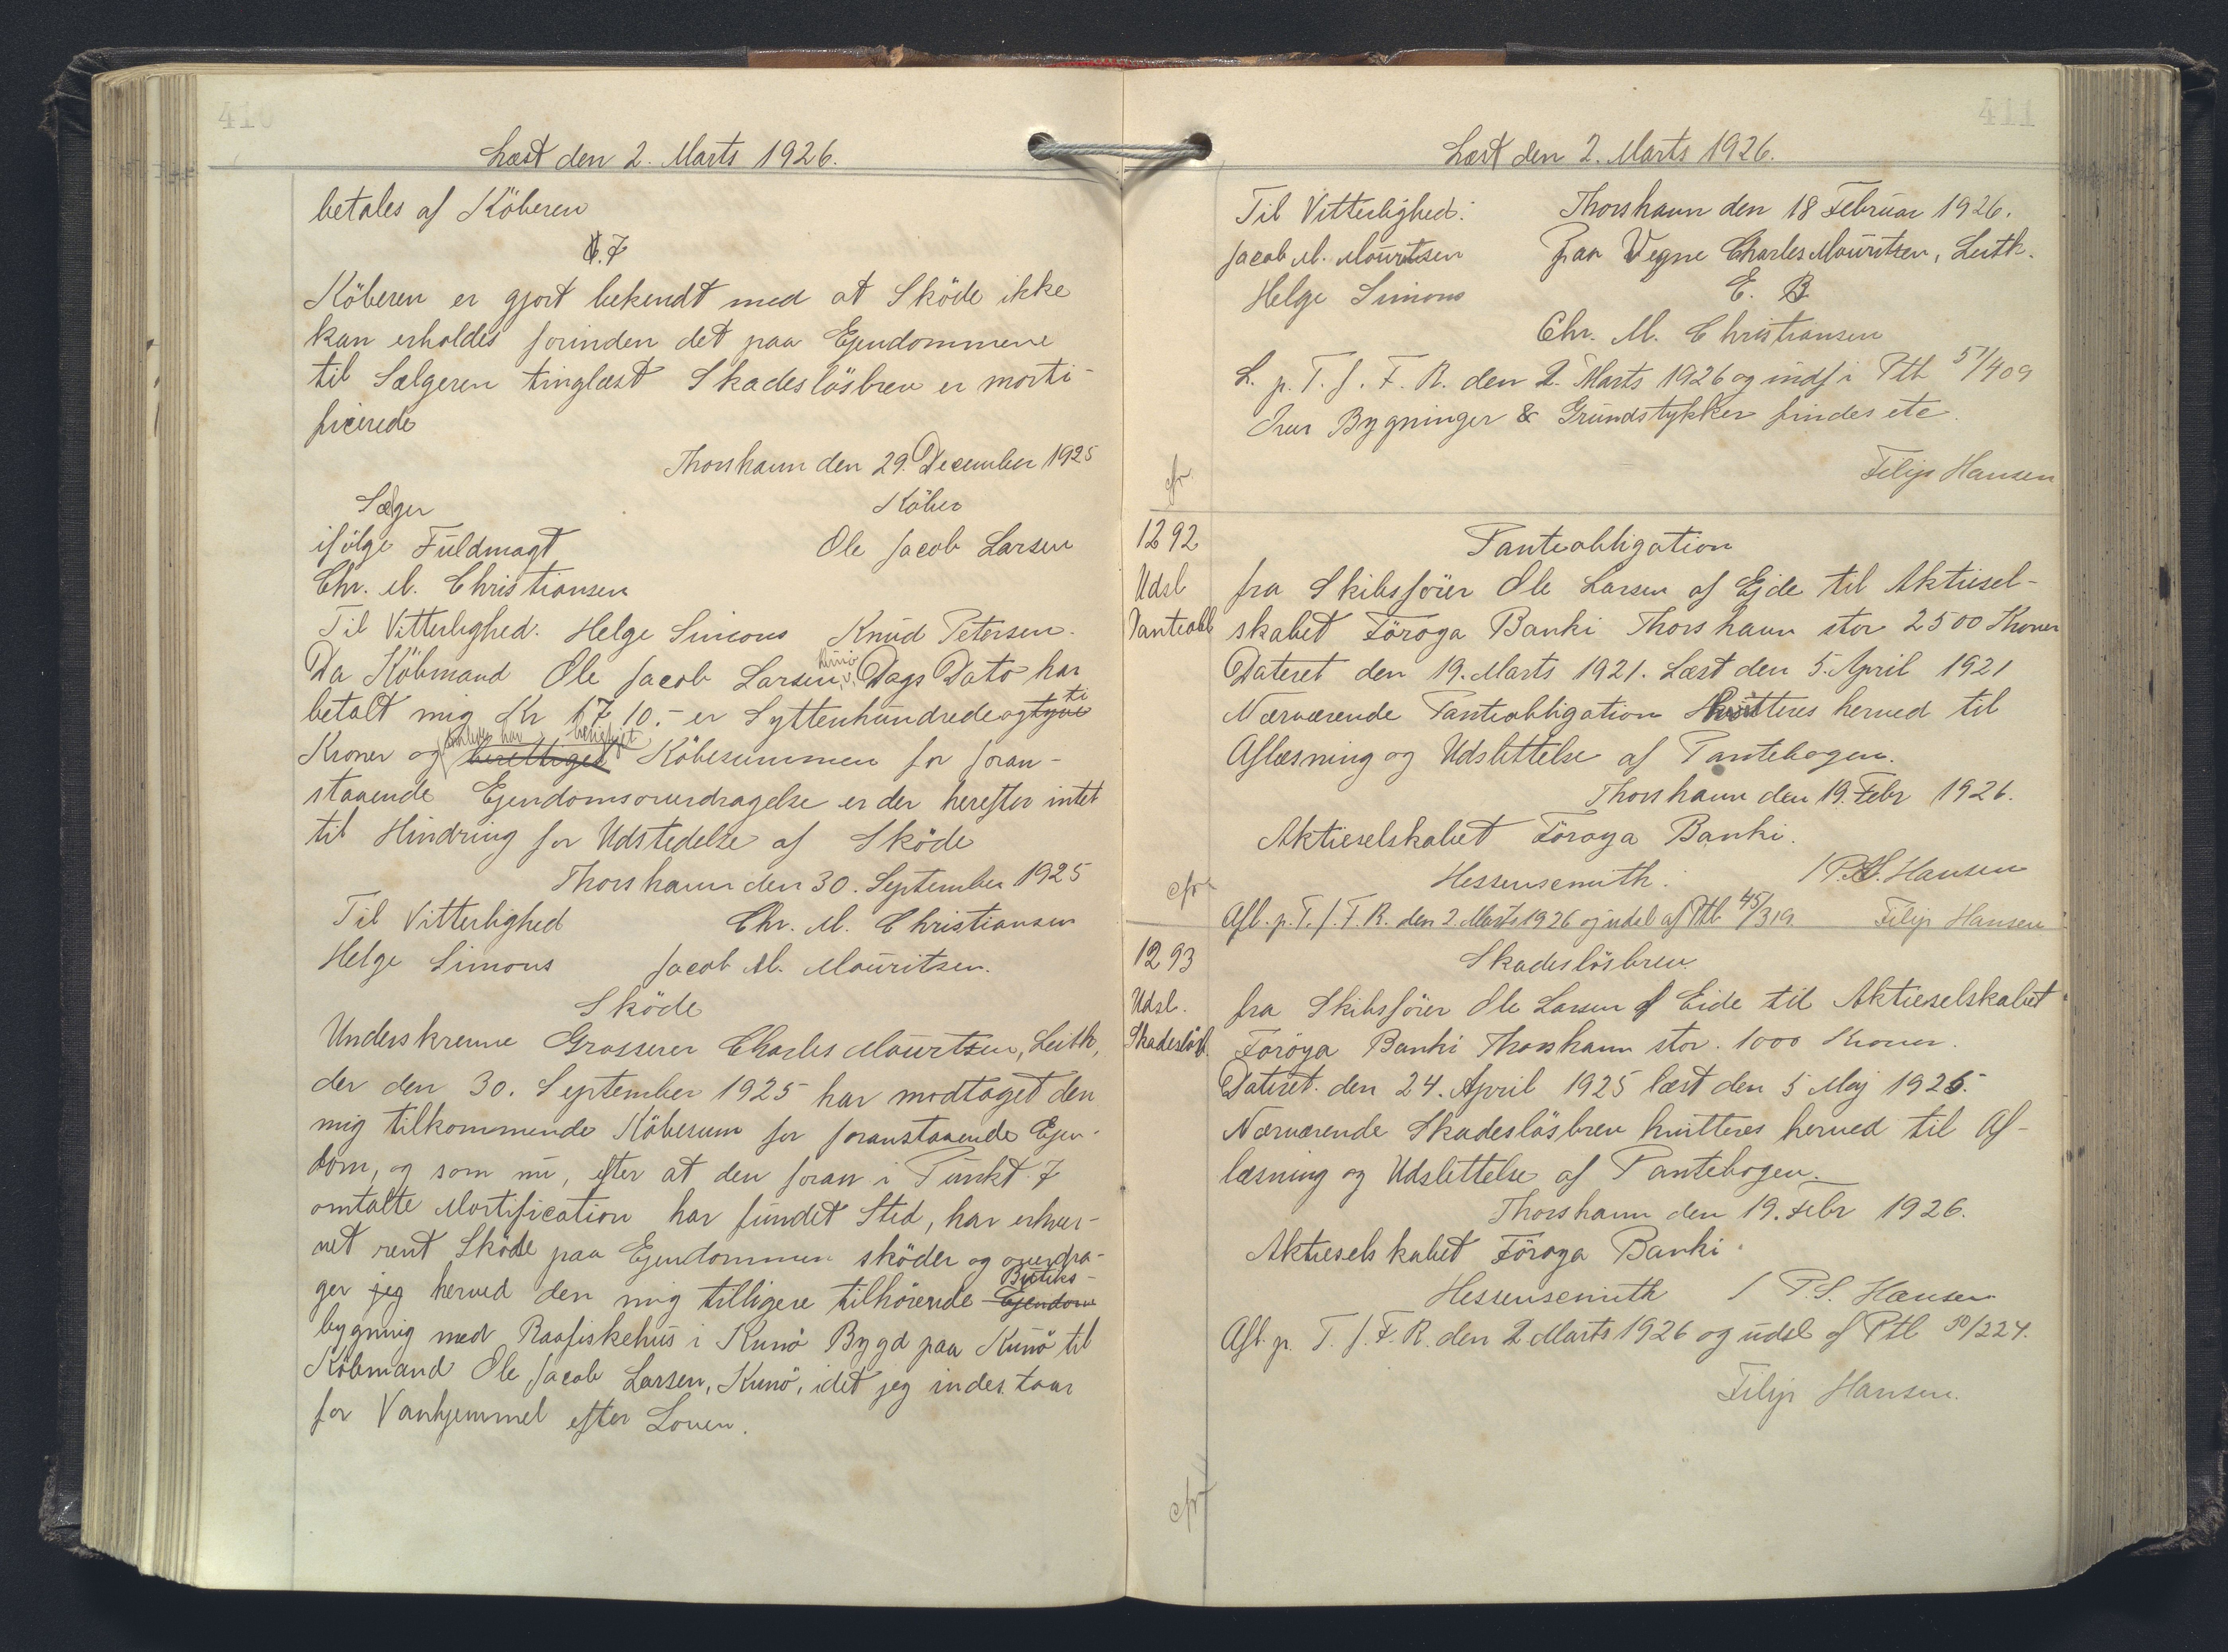 410
Læst den 2. Marts 1926.
betales af Köberen
7
Köberen er gjort bekendt med at Sköde ikke
kan erholdes forinden det paa Ejendommene
til Sælgeren tinglæst Skadeslösbrev er morti-
ficerede
Thorshavn den 29. December 1925
Sælger Köber
ifölge Fuldmagt Ole Jacob Larsen
Chr. M. Christiansen
Til Vitterlighed. Helge Simons Knud Petersen.
Kunö
Da Köbmand Ole Jacob Larsen, Dags Dato har
betalt mig Kr 1710.- er Syttenhundredeogtyve
ti
Kroner og berettiget Köbesummen for foran-
saaledes har berigtiget
staaende Ejendomsoverdragelse er der herefter intet
til Hindring for Udstedelse af Sköde
Thorshavn den 30. September 1925
Til Vitterlighed Chr. M. Christiansen
Helge Simons Jacob M. Mouritsen.
Sköde
Underskrevne Grosserer Charles Mouritzen, Leith,
der den 30. September 1925 har modtaget den
mig tilkommende Köbesum for foranstaaende Ejen-
dom, og som nu, efter at den foran i Punkt 7
omtalte Mortification har fundet Sted, har erhver-
vet rent Sköde paa Ejendommen sköder og overdra-
ger jeg herved den mig tilligere tilhörende Ejendom
Butiks-
bygning med Raafiskehus i Kunö Bygd paa Kunö til
Köbmand Ole Jacob Larsen, Kunö, idet jeg indestaar
for Vanhjemmel efter Loven.
411
Læst den 2. Marts 1926.
Til Vitterlighed: Thorshavn den 18 Februar 1926.
Jacob M. Mouritsen paa Vegne Charles Mouritzen, Leith.
Helge Simons E. B
Chr. M. Christiansen
L. p. T. f. F. R. den 2. Marts 1926 og indf i Ptb 51/409
Hver Bygninger & Grundstykker findes etc.
Filip Hansen
cfr.
1292 Panteobligation
Udsl fra Skibsförer Ole Larsen af Ejde til Aktiesel-
Panteobl skabet Föroya Banki Thorshavn stor 2500 Kroner
Dateret den 19. Marts 1921. Læst den 5. April 1921
Nærværende Panteobligation kvitteres herved til
Aflæsning og Udslettelse af Pantebogen.
Thorshavn den 19. Febr 1926.
Aktieselskabet Föroya Banki.
cfr Hessensemuth. / P.S. Hansen
Afl. p. T. f. F. R. den 2. Marts 1926 og udsl af Ptb 45/319. Filip Hansen
1293 Skadeslösbrev
Udsl. fra Skibsförer Ole Larsen af Eide til Aktieselskabet
Skadeslösb. Föröya Banki Thorshavn stor. 1000 Kroner.
Dateret. den 24. April 1925 læst den 5 Maj 1925.
Nærværende Skadeslösbrev kvitteres herved til Af-
læsning og Udslettelse af Pantebogen.
Thorshavn den 19. Febr 1926.
Aktieselskabet Föroya Banki.
Hessensemuth / P.S. Hansen
Afl. p. T. f. F. R. den 2 Marts 1926 og udsl af Ptb 50/224.
Filip Hansen.
cfr